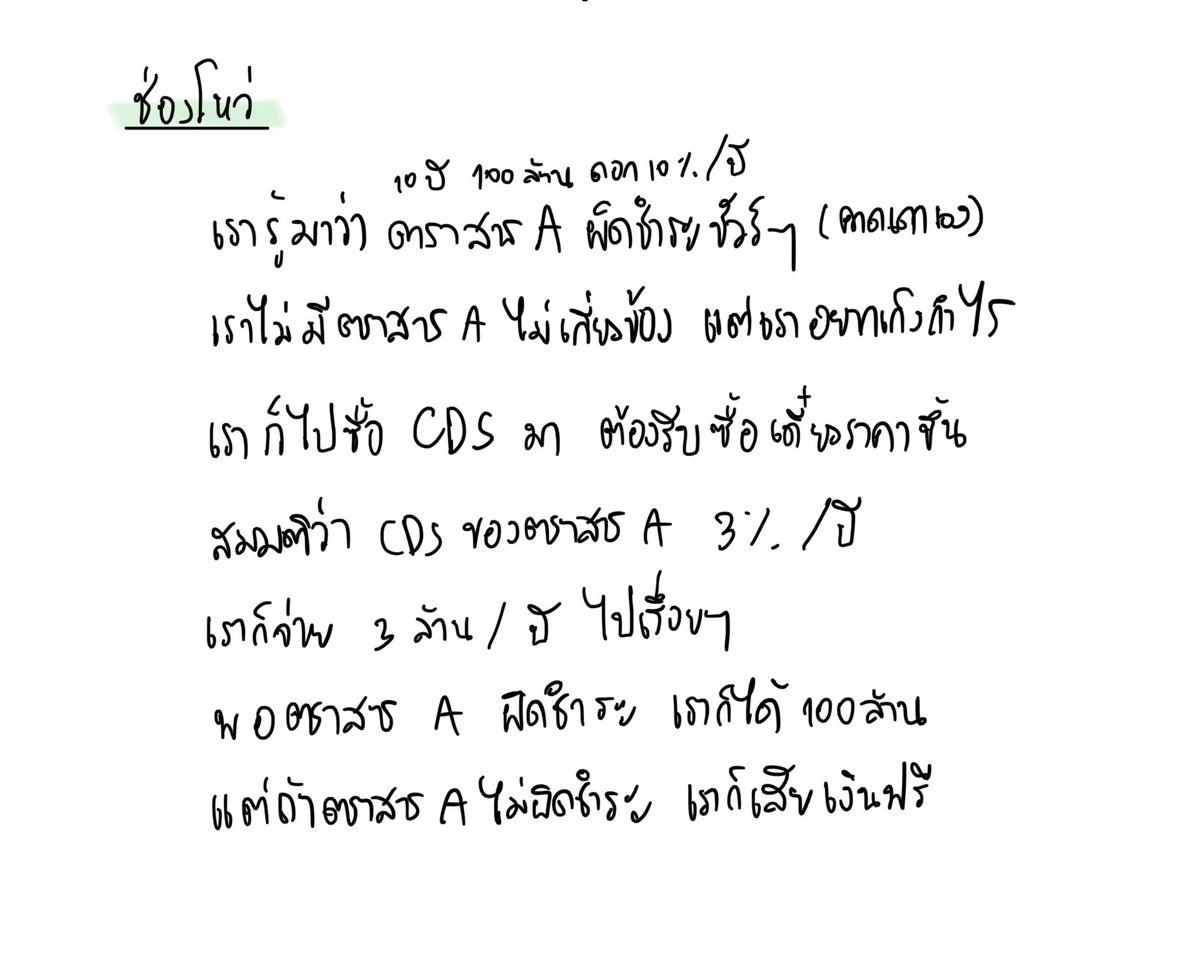 ช่องโหว่
10 ปี 100 ล้าน ดอก 10% /ปี
เรารู้มาว่า ตราสาร A ผิดชำระชัวร์ๆ (คาดเดาเอง)
เราไม่มีตราสาร A ไม่เกี่ยวข้อง แต่เราอยากเก็งกำไร
เราก็ไปซื้อ CDS มา ต้องรีบซื้อเดี๋ยวราคาขึ้น
สมมติว่า CDS ของตราสาร A 3% /ปี
เราก็จ่าย 3 ล้าน / ปี ไปเรื่อยๆ
พอตราสาร A ผิดชำระ เราก็ได้ 100 ล้าน
แต่ถ้าตราสาร A ไม่ผิดชำระ เราก็เสียเงินฟรี